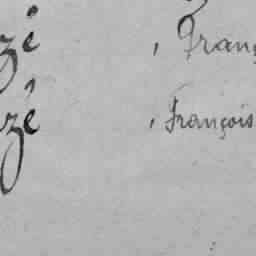 zé, Franç
zé, François